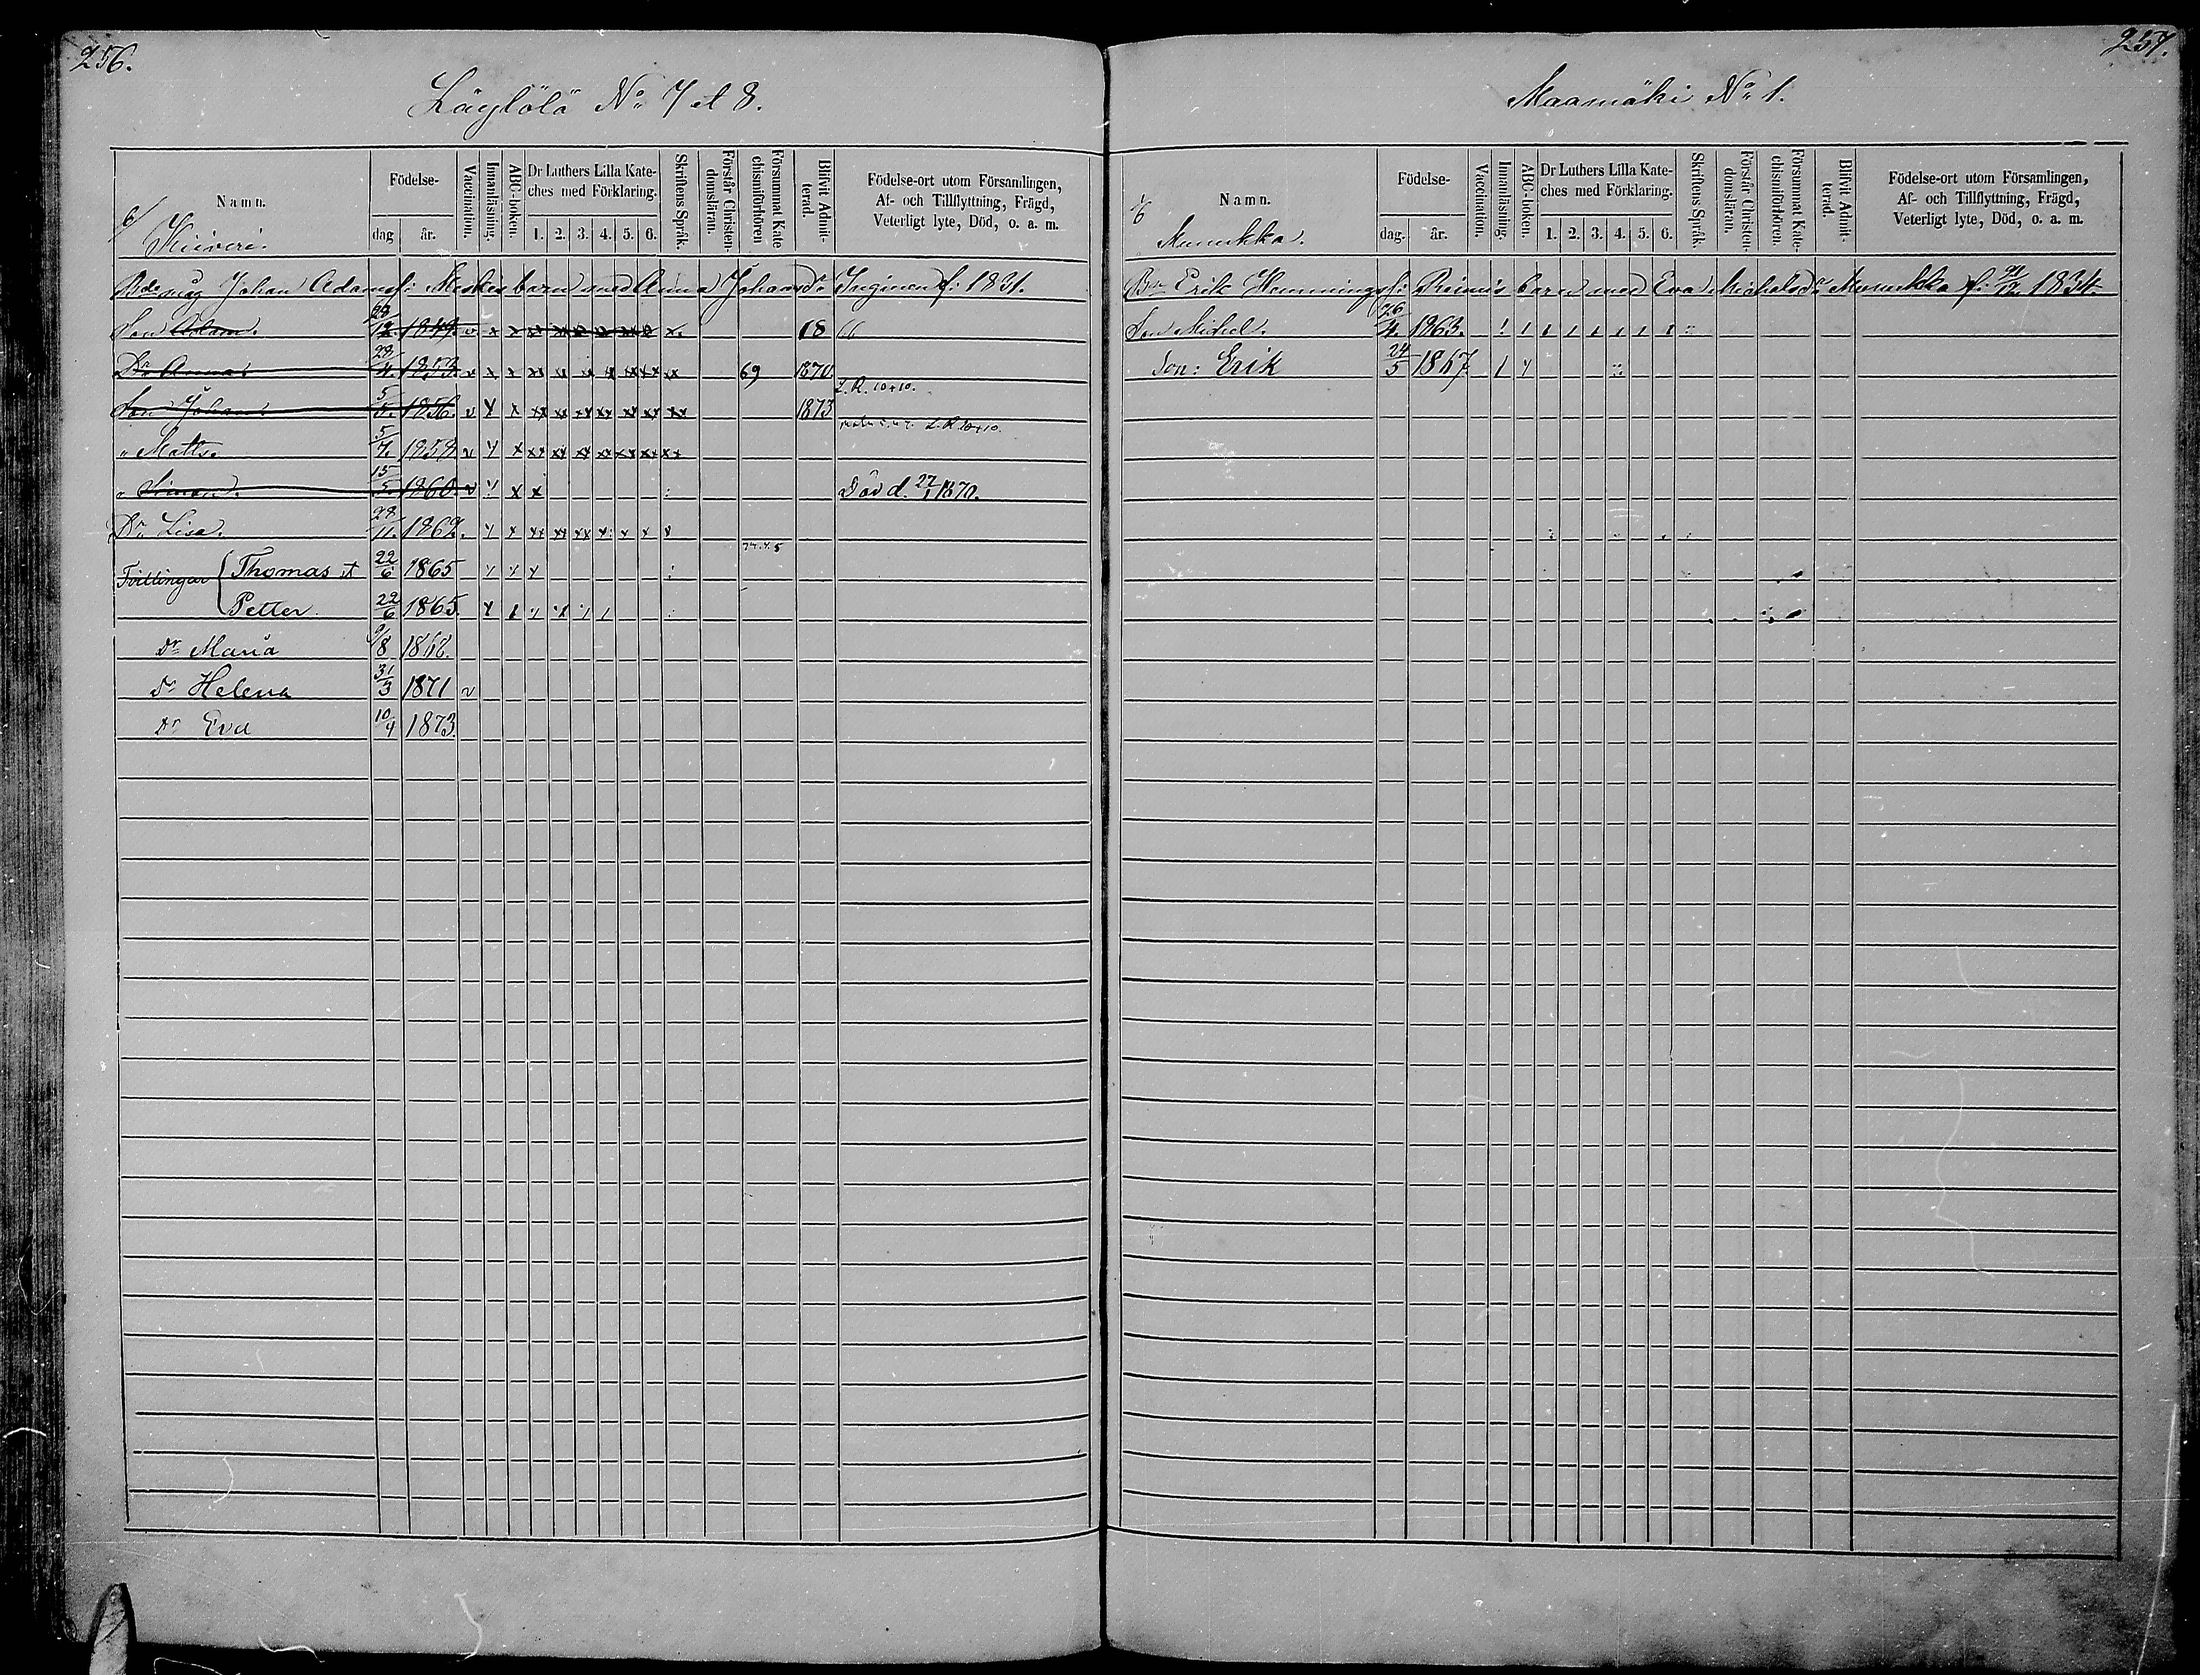 256.
Läylölä No 7 et 8.
Namn.
Födelse-
dag
år.
Vaccination.
Innanläsning.
ABC-boken.
Dr Luthers Lilla Kate-
ches med Förklaring.
1. 2. 3. 4. 5. 6.
Skriftens Språk.
Förstår Christen-
domsläran.
Försummat Kate-
chismiförhören
Blifvit Admit-
terad.
Födelse-ort utom Församlingen,
Af- och Tillflyttning, Frägd,
Veterligt lyte, Död, o. a. m.
6/
Kiiveri.
Johan Adamsf: barn med Anna Johansdr Inginen f: 1831.
Son Adam. 28/12. 1849. v x x 18 66
Dr Anna. 28/4. 1853. v x x 69 1870
L.R. 10+10.
Son Johan. 5/5. 1856. v y x 1873
L.R. 10+10.
" Matts. 5/7. 1858. v y x
" Simon. 15/5. 1860. v y x x Död d. 27/1 1870.
Dr Lisa. 28/11. 1862. y x
Tvillingar { Thomas et 22/6 1865
Petter. 22/6 1865.
Dr Maria 9/8 1868.
Dr Helena 31/3 1871 v
Dr Eva 10/4 1873.
257.
Maamäki No 1.
Namn.
Födelse-
dag.
år.
Vaccination.
Innanläsning.
ABC-boken.
Dr Luthers Lilla Kate-
ches med Förklaring.
1. 2. 3. 4. 5. 6.
Skriftens Språk.
Förstår Christen-
domsläran.
Försummat Kate-
chismiförhören.
Blifvit Admit-
terad.
Födelse-ort utom Församlingen,
Af- och Tillflyttning, Frägd,
Veterligt lyte, Död, o. a. m.
Munukka.
Erik Hemmingsf: barn med Eva Michelsdr Munukka f: 1834
Son Michel. 26/4. 1863.
Son: Erik 24/5 1867